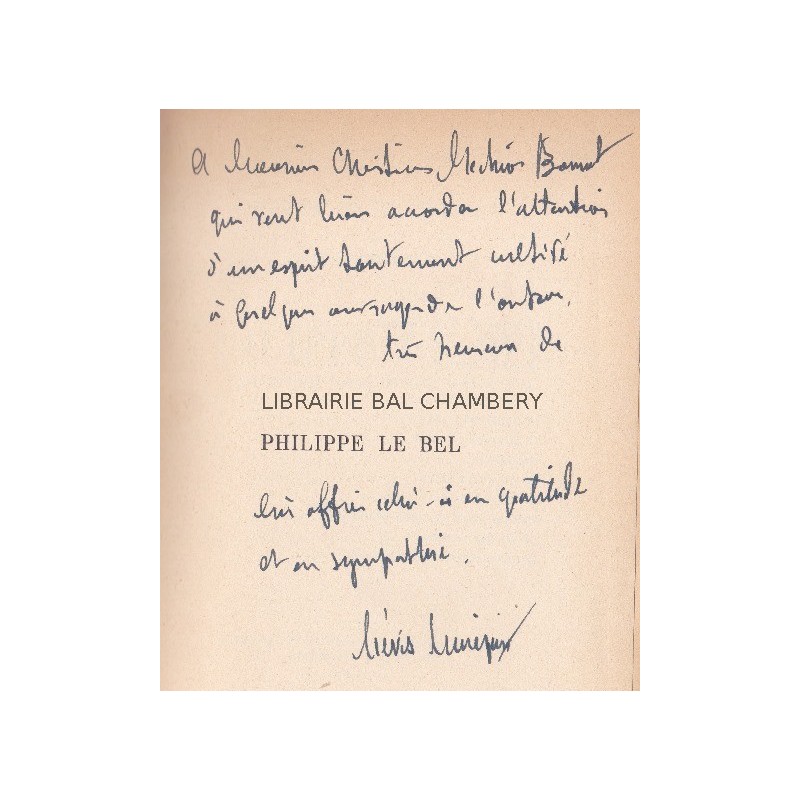 A Monsieur Christian Melchior Bonnet
qui veut bien accorder l'attention
d'un esprit hautement cultivé
à quelques ouvrages de l'auteur,
très heureux de
LIBRAIRIE BAL CHAMBERY
PHILIPPE LE BEL
lui offrir celui-ci en gratitude
et en sympathie.
Lévis Mirepoix